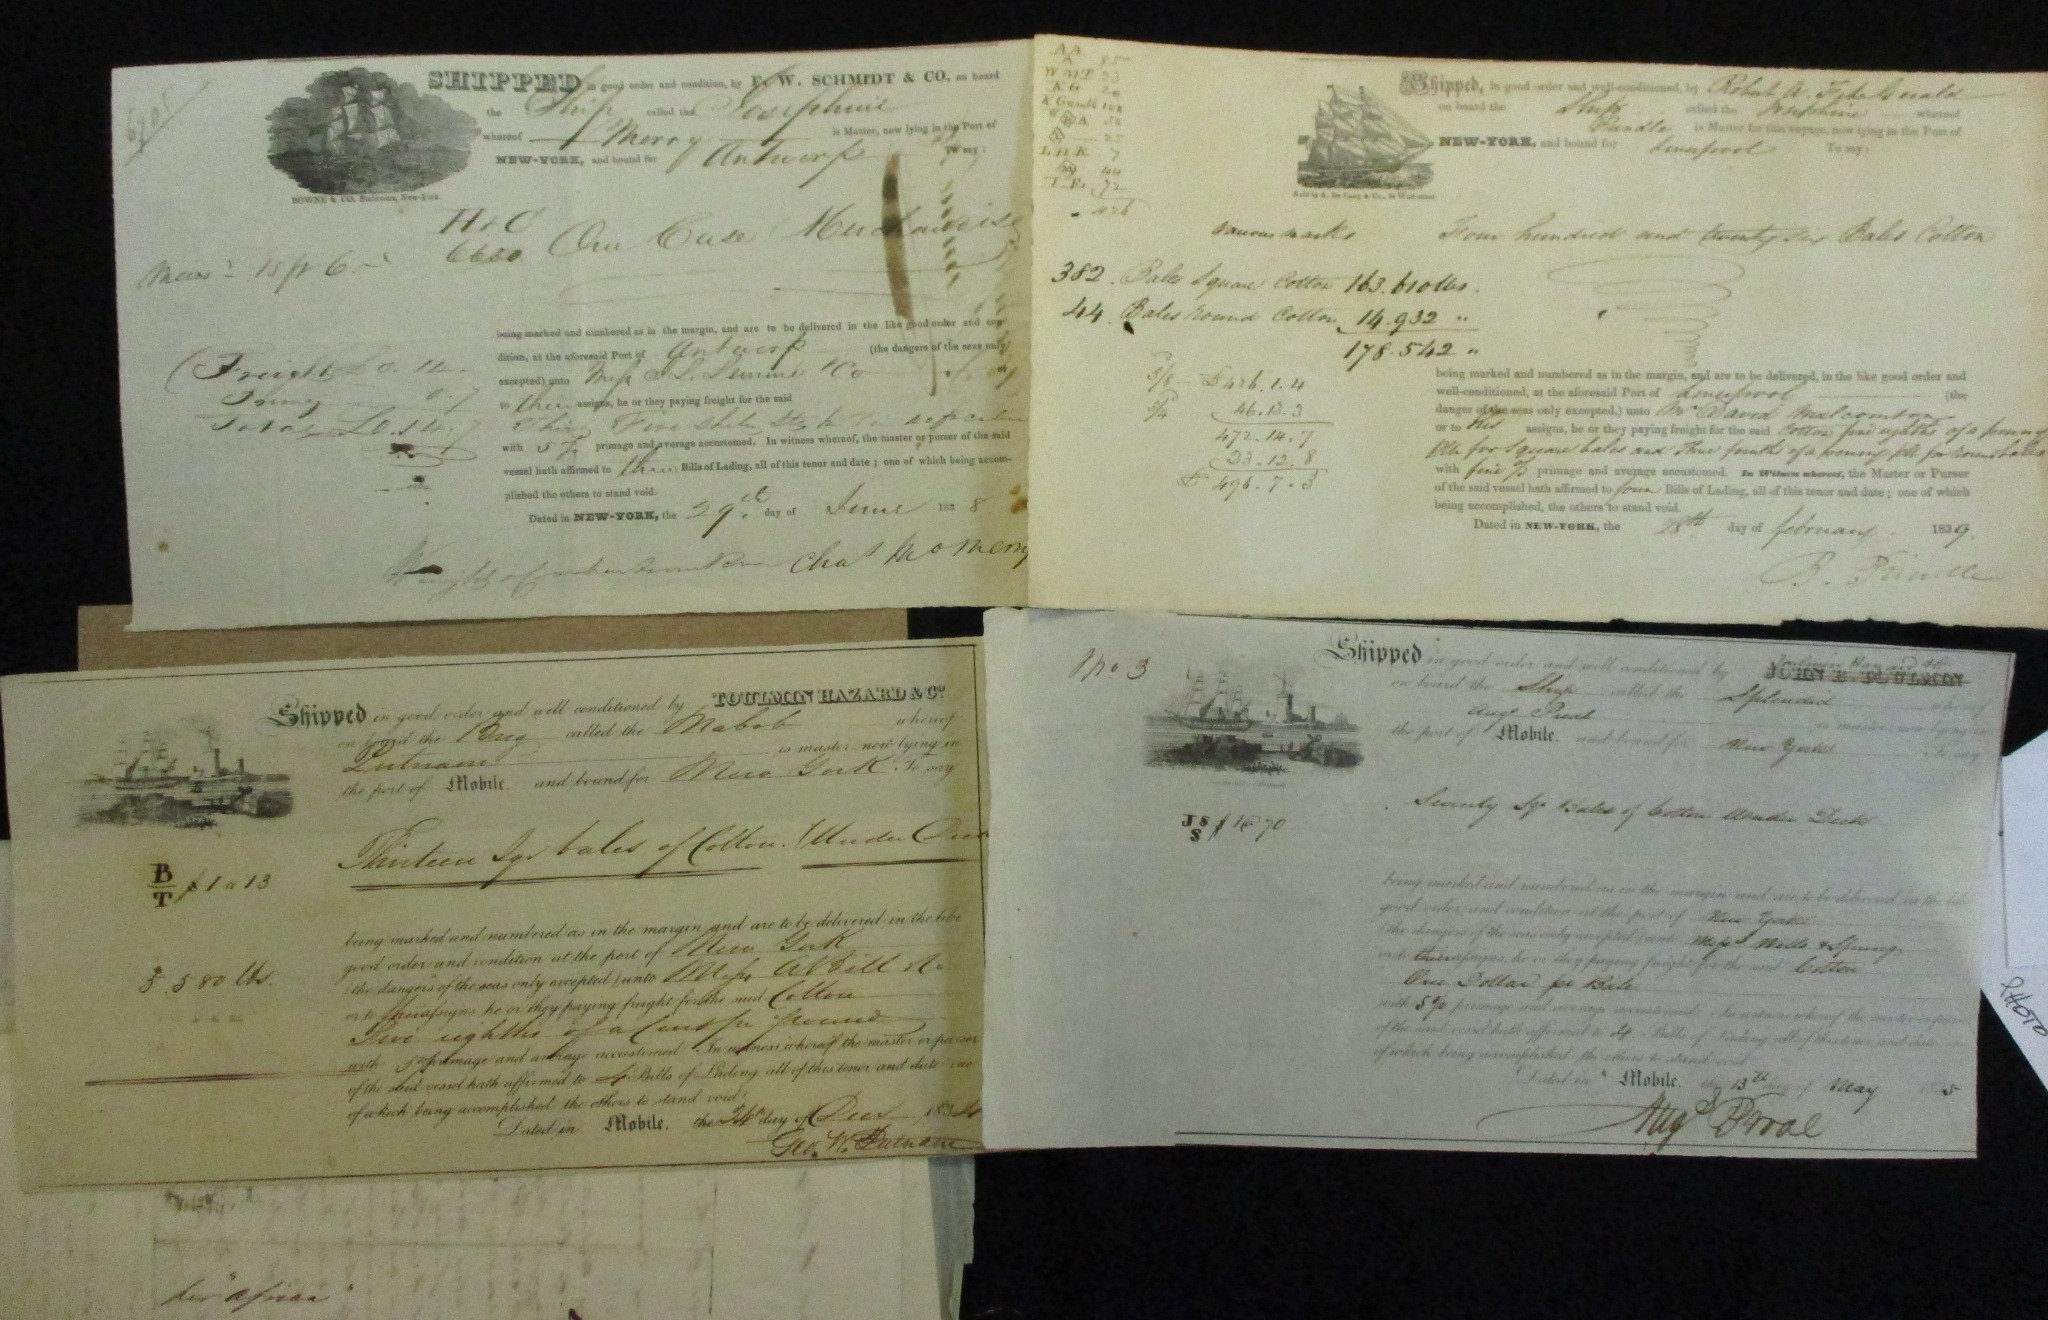 SHIPPED in good order and condition, by F. W. SCHMIDT & CO. on board
the Ship called the Josephine
whereof Merry is Master, now lying in the Port of
NEW-YORK, and bound for Antwerp To say:
BOWNE & CO. Stationers, New-York.
H & C
6650 One Case Merchandise
being marked and numbered as in the margin, and are to be delivered in the like good order and con-
dition, at the aforesaid Port of Antwerp (the dangers of the seas only
excepted) unto Mess
to their assigns, he or they paying freight for the said
with 5 % primage and average accustomed. In witness whereof, the master or purser of the said
vessel hath affirmed to three Bills of Lading, all of this tenor and date; one of which being accom-
plished the others to stand void.
Dated in NEW-YORK, the 29th day of June 183 8
Freight £0.14.
Total £0.14.7
Chas Merry
A A
A 85
W M T 23
K G 20
L. H. K 7
72
426
Shipped, in good order and well-conditioned, by Robert A. Fitz Gerald
on board the Ship called the Josephine whereof
is Master for this voyage, now lying in the Port of
NEW-YORK, and bound for Liverpool To say:
various marks Four hundred and twenty six Bales Cotton
382. Bales Square Cotton 163.610 lbs.
44. Bales Round Cotton 14.932 "
178.542 "
5/8 £426.1.4
3/4 46.13.3
472.14.7
23.12.8
£ 496.7.3
being marked and numbered as in the margin, and are to be delivered, in the like good order and
well-conditioned, at the aforesaid Port of Liverpool (the
danger of the seas only excepted,) unto Mr David Malcomson
or to his assigns, he or they paying freight for the said Cotton five eighths of a penny
for Square bales and three fourths of a penny for round bales
with five % primage and average accustomed. In Witness whereof, the Master or Purser
of the said vessel hath affirmed to four Bills of Lading, all of this tenor and date; one of which
being accomplished, the others to stand void.
Dated in NEW-YORK, the 28th day of february 1839.
Shipped in good order and well conditioned by TOULMIN HAZARD & Co.
on board the Brig called the Nabob whereof
Putnam is master now lying in
the port of Mobile. and bound for New York To say
Thirteen Sqr bales of Cotton. (Under Deck
B
T
# 1 a 13
being marked and numbered as in the margin and are to be delivered in the like
good order and condition at the port of New York
(the dangers of the seas only accepted) unto Messrs
5.580 lbs.
or to their assigns, he or they paying freight for the said Cotton
Five eighths of a Cent per pound
with 5% primage and average accustomed. In witness whereof the master or purser
of the said vessel hath affirmed to 4 Bills of Lading all of this tenor and date one
of which being accomplished the others to stand void.
Dated in Mobile. the 24th day of Dec 183
Geo. W. Putnam
No 3
Shipped in good order and well conditioned by JOHN B. TOULMIN
on board the Ship called the Splendid whereof
Augs Proal is master now lying in
the port of Mobile. and bound for New York To say
Seventy Sqr Bales of Cotton Under Deck
J S
S
# 1 @ 70
being marked and numbered as in the margin and are to be delivered in the like
good order and condition at the port of New York
(the dangers of the seas only accepted) unto Messrs Wells & Spring
or to their assigns, he or they paying freight for the said Cotton
One Dollar per Bale
with 5% primage and average accustomed. In witness whereof the master or purser
of the said vessel hath affirmed to 4 Bills of Lading all of this tenor and date one
of which being accomplished the others to stand void.
Dated in Mobile. the 13th day of May 5
Augs Proal
PHOTO
per "Africa"